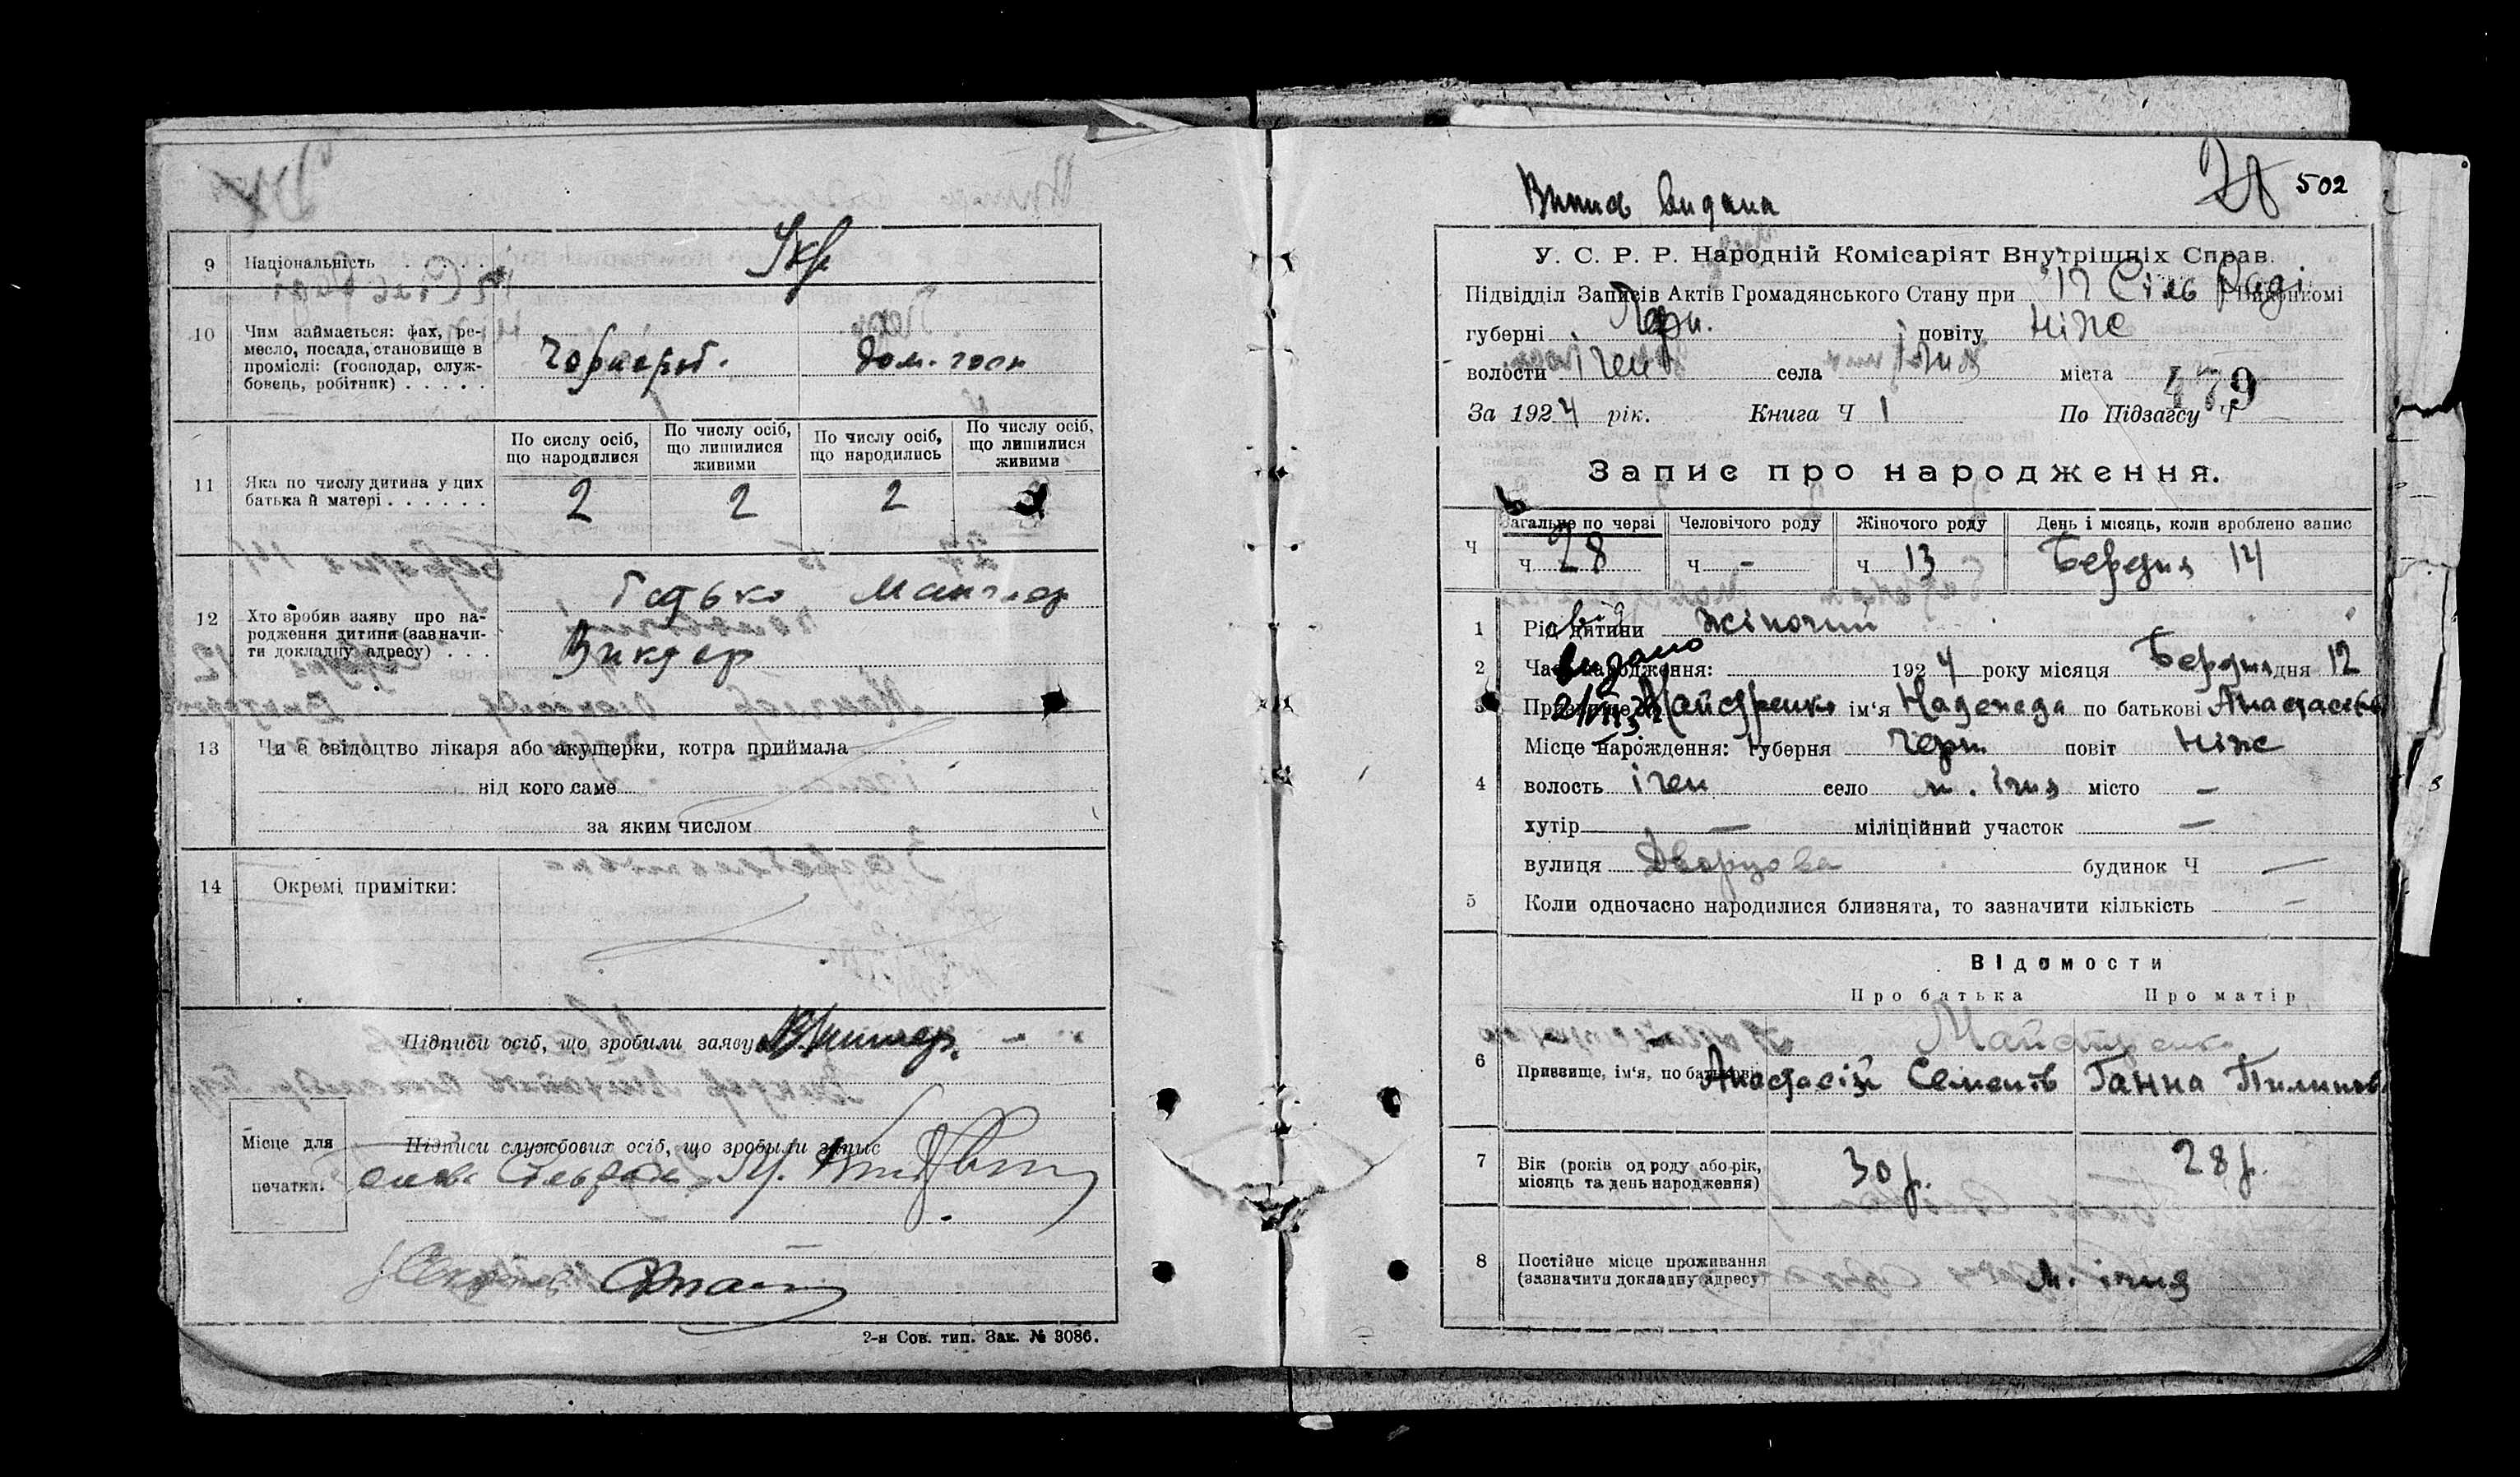 9 Національність . . . . . Укр
10 Чим займається: фах, ре-
месло, посада, становище в
проміслі: (господар, служ-
бовець, робітник) . . . . .
дом. госп
По сислу осіб, що народилися
По числу осіб, що лишилися живими
По числу осіб, що народились
По числу осіб, що лишилися живими
11 Яка по числу дитина у цих
батька й матері . . . . . .
2 2 2
12 Хто зробив заяву про на-
родження дитини (зазначи-
ти докладну адресу) . . .
Батько
Виктор
13 Чи є свідоцтво лікаря або акушерки, котра приймала
від кого саме
за яким числом
14 Окремі примітки:
Підписи осіб, що зробили заяву
Місце для
печатки.
Підписи службових осіб, що зробыли запыс
2-я Сов. тип. Зак. № 3086.
502
Випис видана
У. С. Р. Р. Народній Комісаріят Внутрішніх Справ.
Підвідділ Записів Актів Громадянського Стану при Сіль Раді Виконкомі
губерні Черн. повіту Ніж
волости Ічен села Ічня міста
479
За 1924 рік. Книга Ч 1 По Підзагсу Ч —
Запис про народження.
Ч
Загальне по черзі Человічого роду Жіночого роду День і місяць, коли зроблено запис
Ч 28 Ч - Ч 13 Березня 14
1 Рід дитини жіночий
2 Час народження: 1924 року місяця Березня дня 12
видано
3 Призвище Майстренко ім'я Надежда по батькові Анастасієв
Місце нарождення: губерня Черн. повіт Ніж
4 волость Ічен село м. Ічня місто —
хутір — міліційний участок —
вулиця Дворцова будинок Ч —
5 Коли одночасно народилися близнята, то зазначити кількість —
Відомости
Про батька Про матір
Майстренко
6 Призвище, ім'я, по батькові Анастасій Семенів Ганна Пилипов
7 Вік (років од роду або рік,
місяць та день народження)
30 р. 28 р.
8 Постійне місце проживання
(зазначити докладну адресу)
м. Ічня